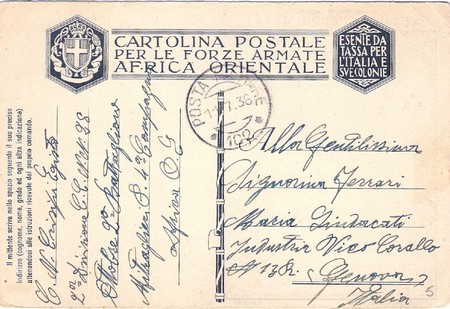 CARTOLINA POSTALE
PER LE FORZE ARMATE
AFRICA ORIENTALE
ESENTE DA
TASSA PER
L'ITALIA E
SVE COLONIE
POSTA
1.36
102
Il mittente scriva nello spazio seguente il suo preciso
indirizzo (cognome, nome, grado ed ogni altra indicazione)
attenendosi alle istruzioni ricevute dal proprio comando.
C. N.
2ª Divisione C.C. N.N. 28
Ottobre 2º Battaglione
Mitraglieri S. 4ª Compagnia
Africa O
Alla Gentilissima
Signorina Ferrari
Maria Sindacati
Industria Vico Corallo
N 13R.
Genova
Italia
5